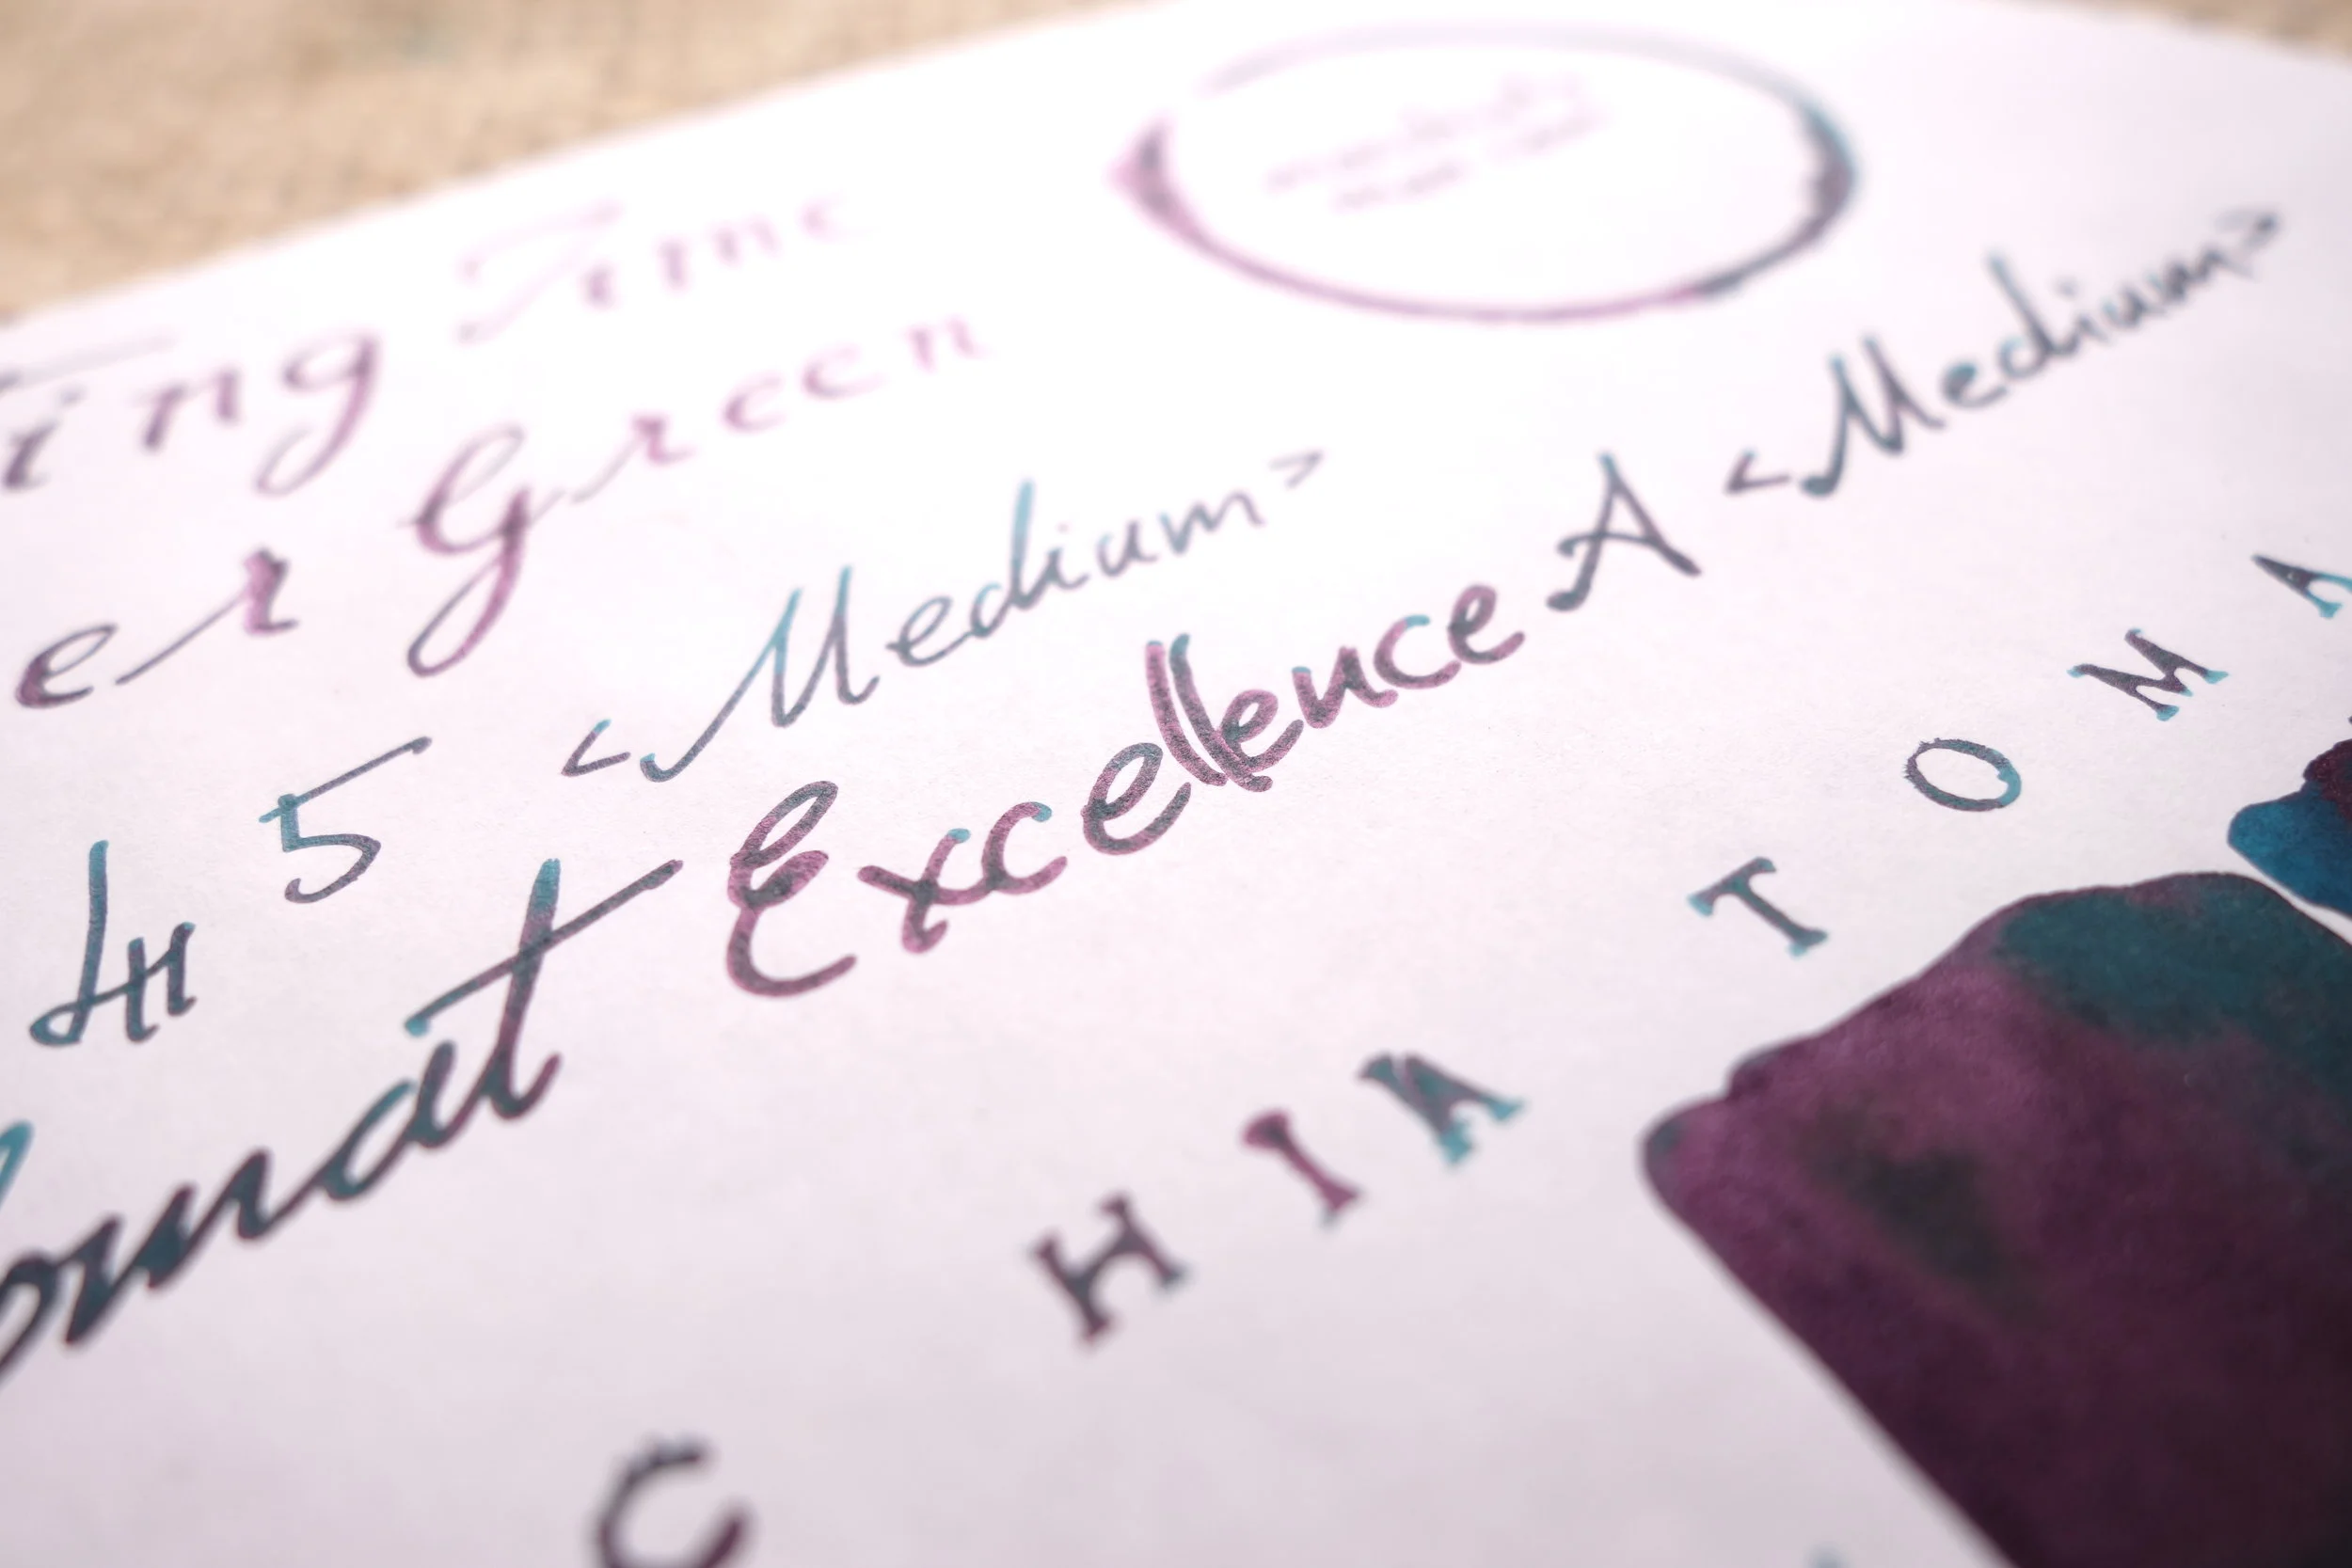 ing Time
er Green
45 <Medium>
omat Excellence A <Medium>
CHIATOMA